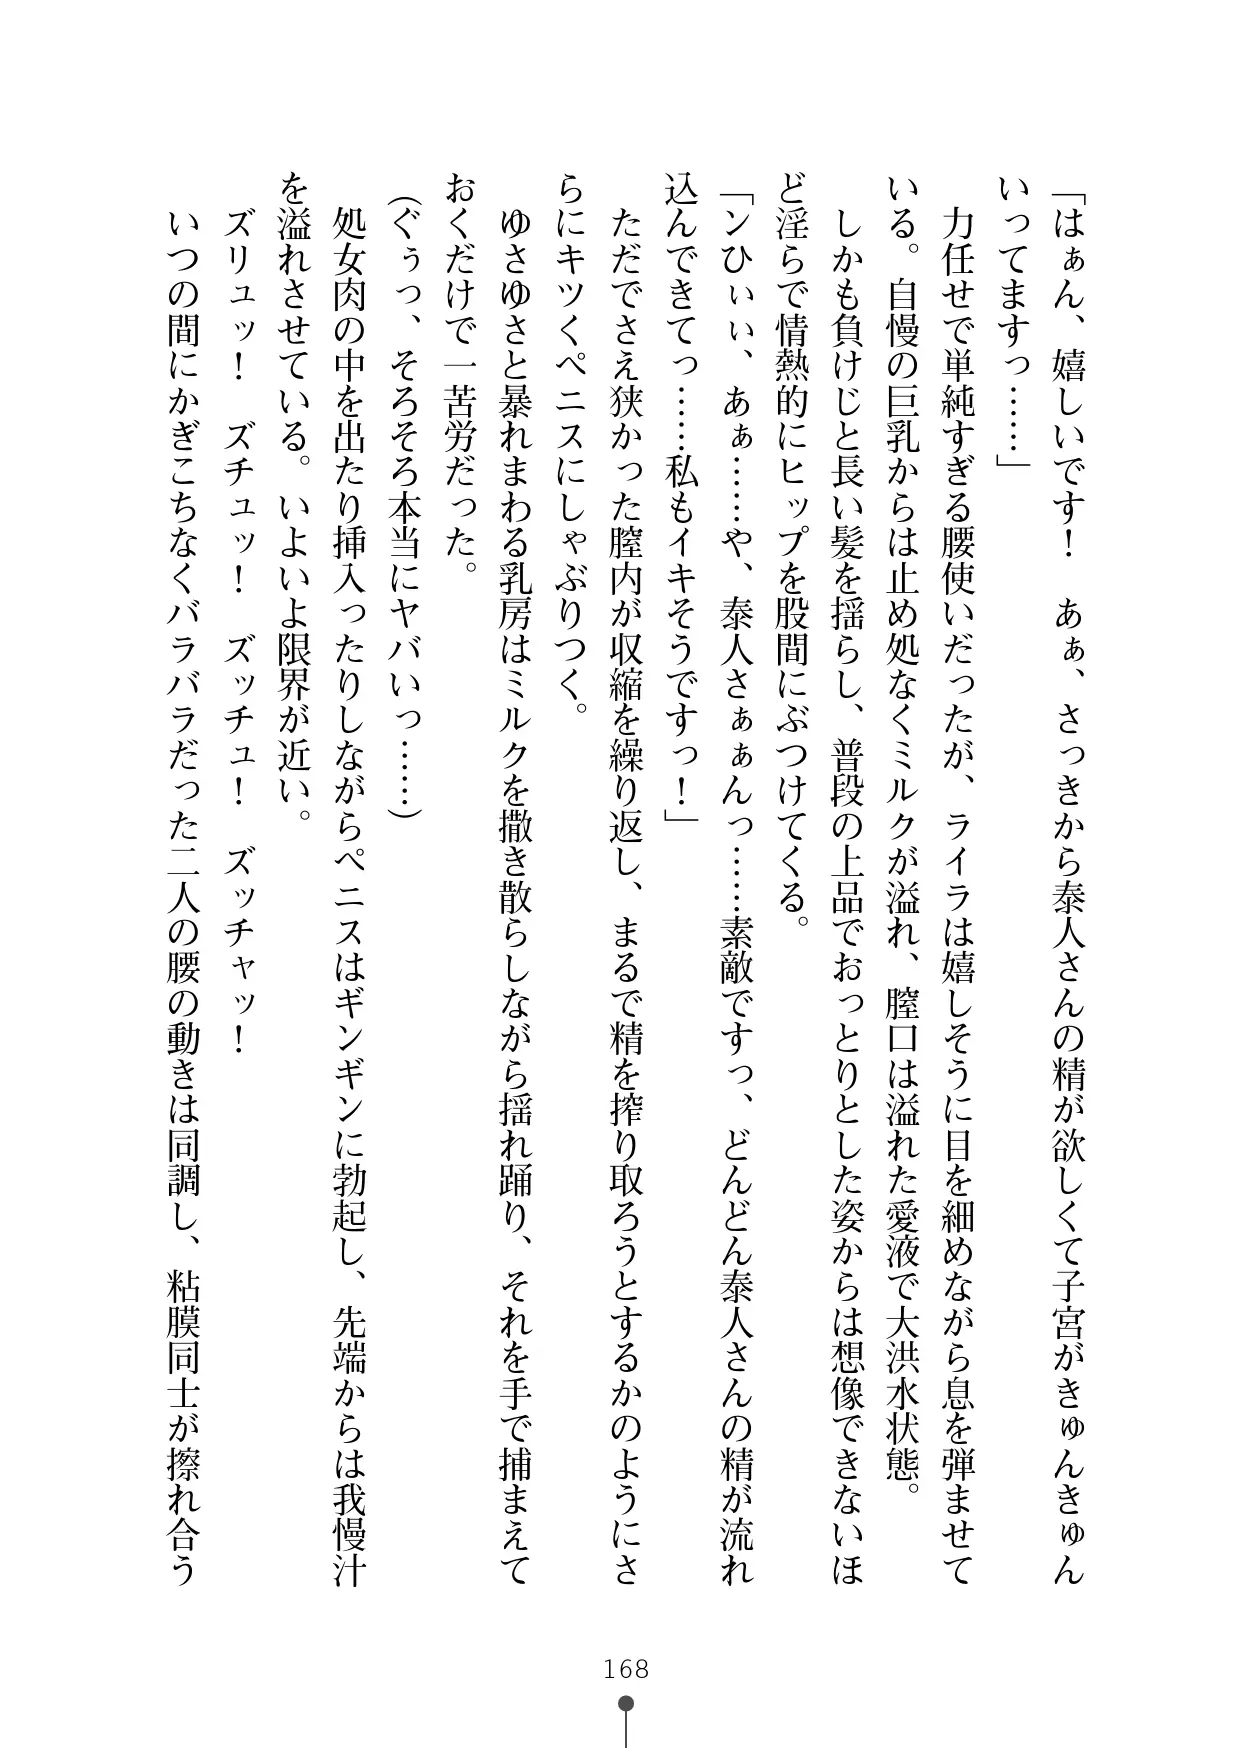 「はぁん、嬉しいです！　あぁ、さっきから泰人さんの精が欲しくて子宮がきゅんきゅん
いってますっ……」
　力任せで単純すぎる腰使いだったが、ライラは嬉しそうに目を細めながら息を弾ませて
いる。自慢の巨乳からは止め処なくミルクが溢れ、膣口は溢れた愛液で大洪水状態。
　しかも負けじと長い髪を揺らし、普段の上品でおっとりとした姿からは想像できないほ
ど淫らで情熱的にヒップを股間にぶつけてくる。
「ンひぃぃ、あぁ……や、泰人さぁぁんっ……素敵ですっ、どんどん泰人さんの精が流れ
込んできてっ……私もイキそうですっ！」
　ただでさえ狭かった膣内が収縮を繰り返し、まるで精を搾り取ろうとするかのようにさ
らにキツくペニスにしゃぶりつく。
　ゆさゆさと暴れまわる乳房はミルクを撒き散らしながら揺れ踊り、それを手で捕まえて
おくだけで一苦労だった。
（ぐぅっ、そろそろ本当にヤバいっ……）
　処女肉の中を出たり挿入ったりしながらペニスはギンギンに勃起し、先端からは我慢汁
を溢れさせている。いよいよ限界が近い。
　ズリュッ！　ズチュッ！　ズッチュ！　ズッチャッ！
　いつの間にかぎこちなくバラバラだった二人の腰の動きは同調し、粘膜同士が擦れ合う
168